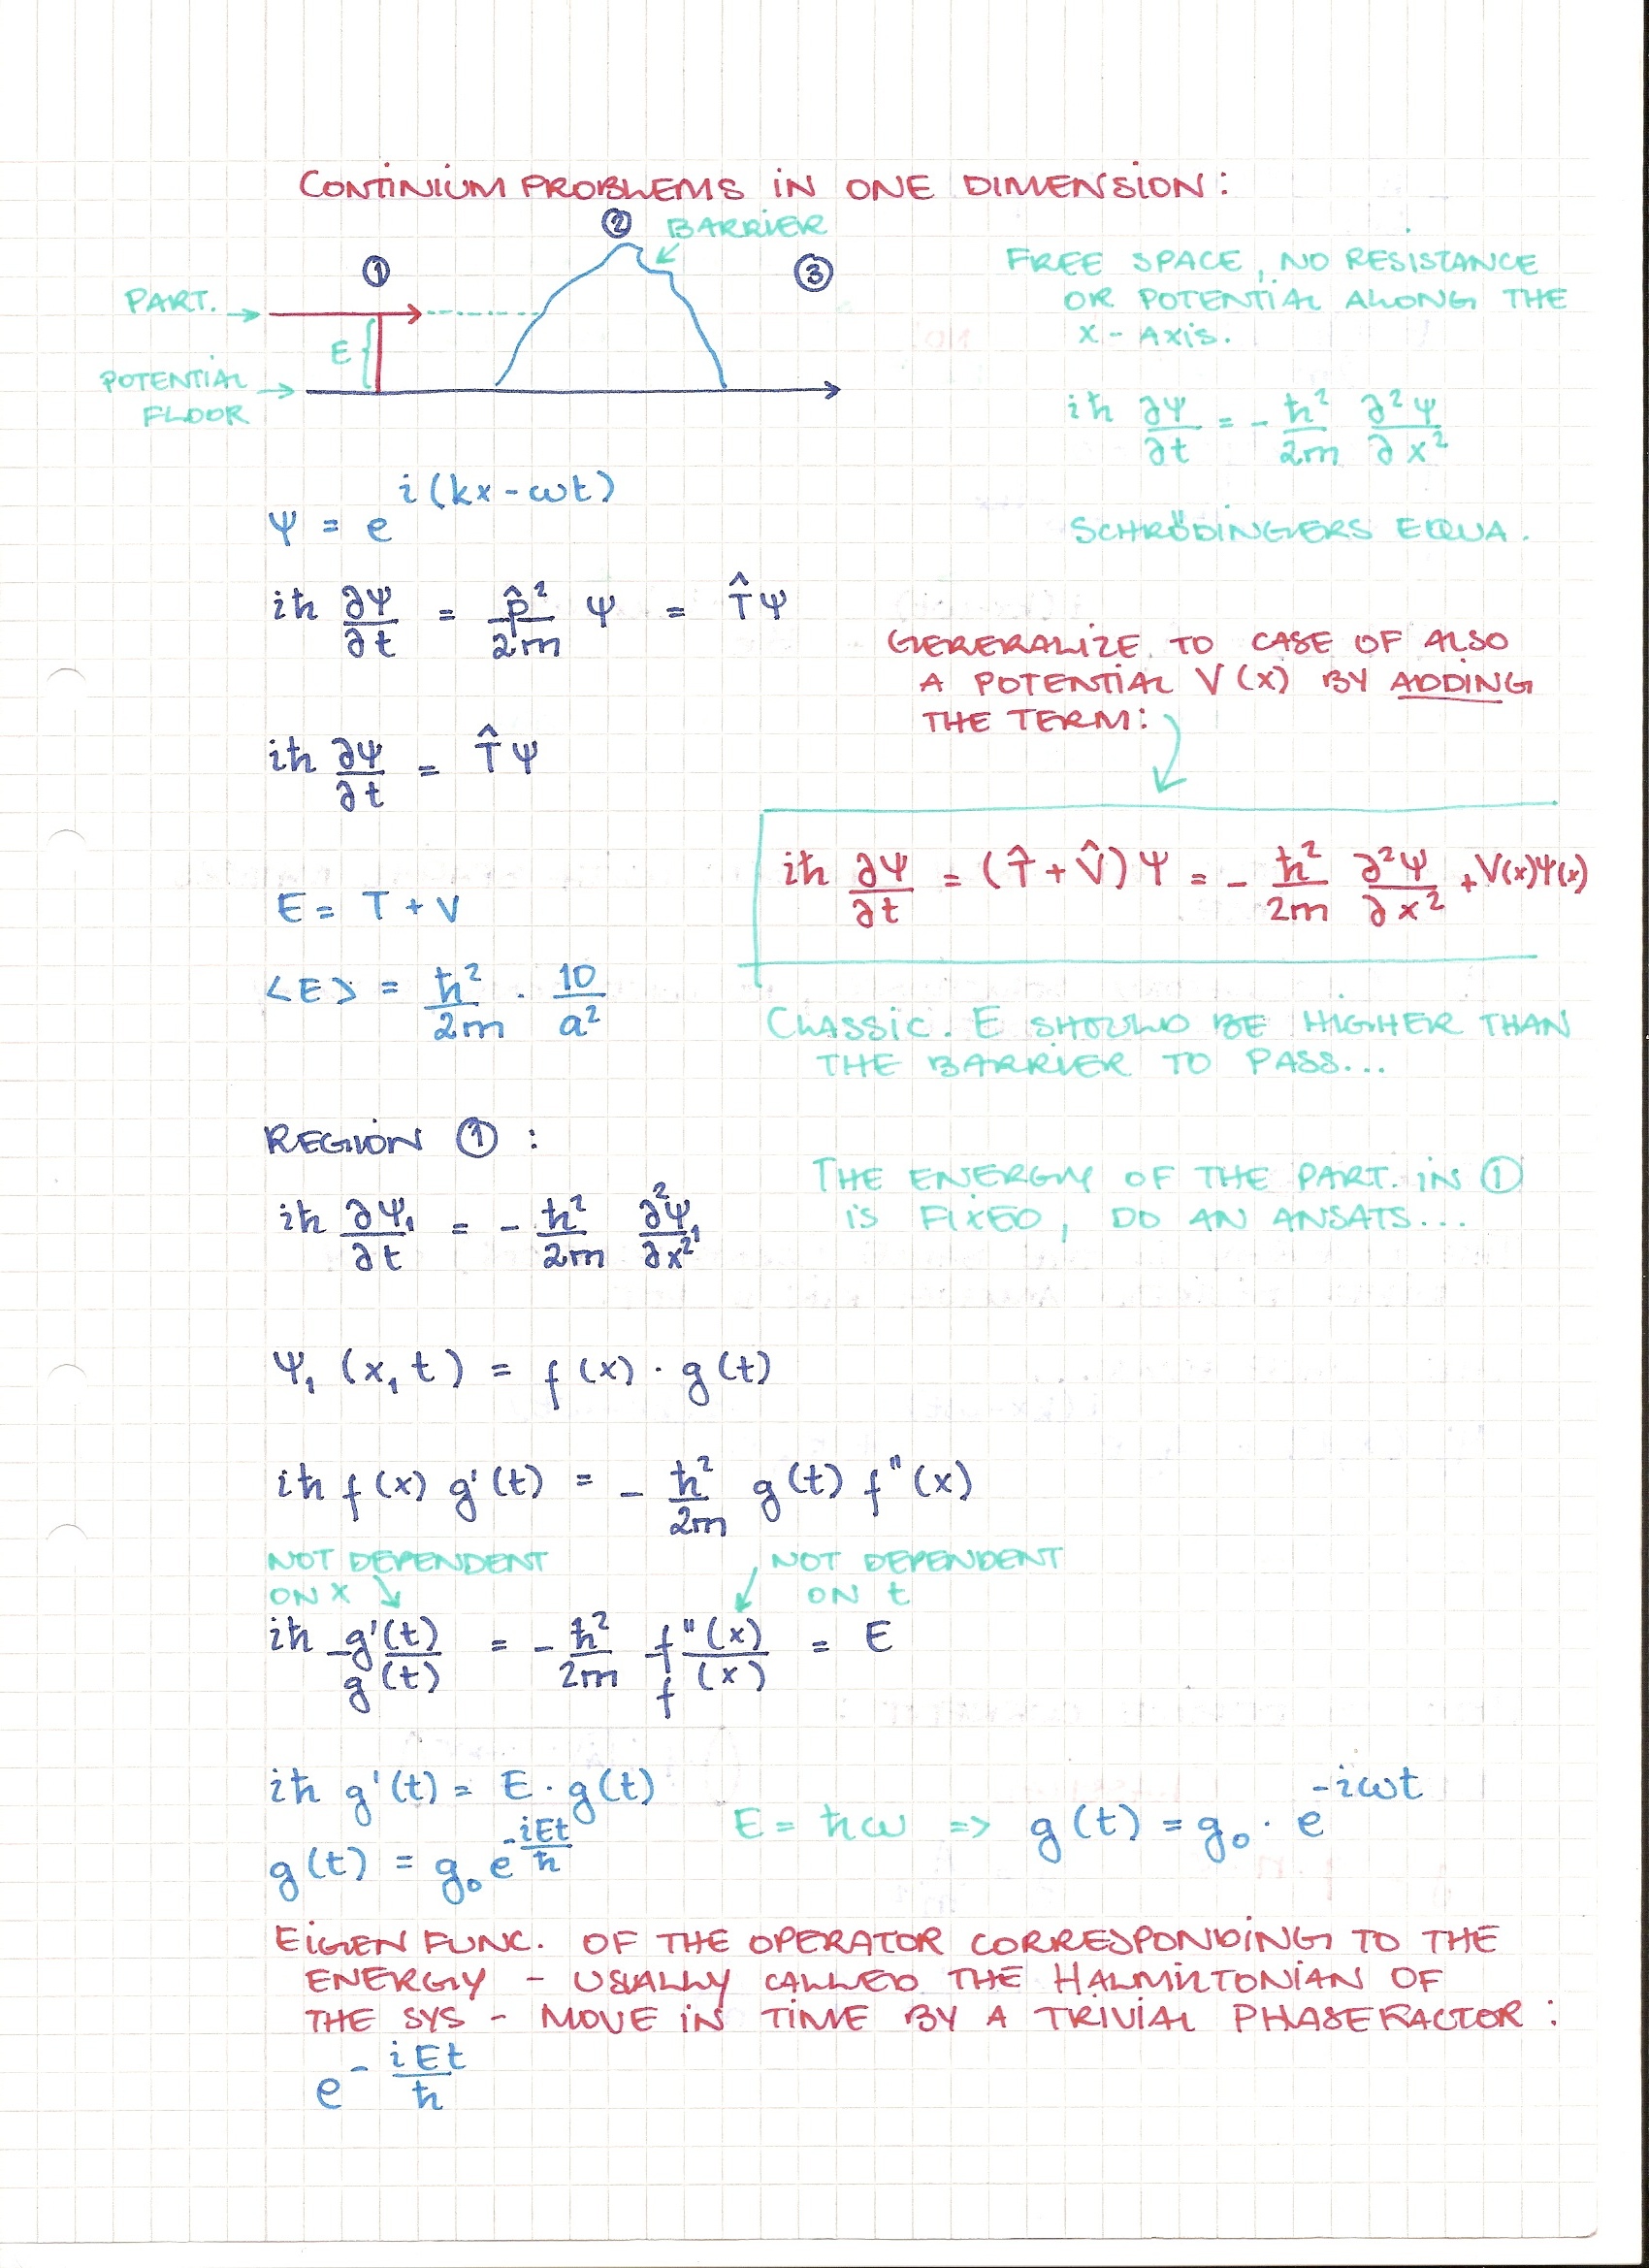 CONTINIUM PROBLEMS IN ONE DIMENSION:
② BARRIER
① ③
PART.
E
POTENTIAL
FLOOR
FREE SPACE, NO RESISTANCE
OR POTENTIAL ALONG THE
X - AXIS.
iħ ∂Ψ/∂t = - ħ²/2m ∂²Ψ/∂x²
SCHRÖDINGERS EQUA.
Ψ = e^i(kx-ωt)
iħ ∂Ψ/∂t = p̂²/2m Ψ = T̂Ψ
GERERALIZE TO CASE OF ALSO
A POTENTIAL V(X) BY ADDING
THE TERM:
iħ ∂Ψ/∂t = T̂Ψ
iħ ∂Ψ/∂t = (T̂+V̂)Ψ = - ħ²/2m ∂²Ψ/∂x² + V(x)Ψ(x)
E = T + V
<E> = ħ²/2m · 10/a²
CLASSIC. E SHOULD BE HIGHER THAN
THE BARRIER TO PASS...
REGION ① :
THE ENERGY OF THE PART. IN ①
IS FIXED, DO AN ANSATS...
iħ ∂Ψ₁/∂t = - ħ²/2m ∂²Ψ₁/∂x²
Ψ₁ (x, t) = f(x) · g(t)
iħ f(x) g'(t) = - ħ²/2m g(t) f"(x)
NOT DEPENDENT
ON X
NOT DEPENDENT
ON t
iħ g'(t)/g(t) = - ħ²/2m f"(x)/f(x) = E
iħ g'(t) = E · g(t)
g(t) = g₀ e^-iEt/ħ
E = ħω => g(t) = g₀ · e^-iωt
EIGEN FUNC. OF THE OPERATOR CORRESPONDING TO THE
ENERGY - USUALLY CALLED THE HALMILTONIAN OF
THE SYS - MOVE IN TIME BY A TRIVIAL PHASEFACTOR :
e^- iEt/ħ